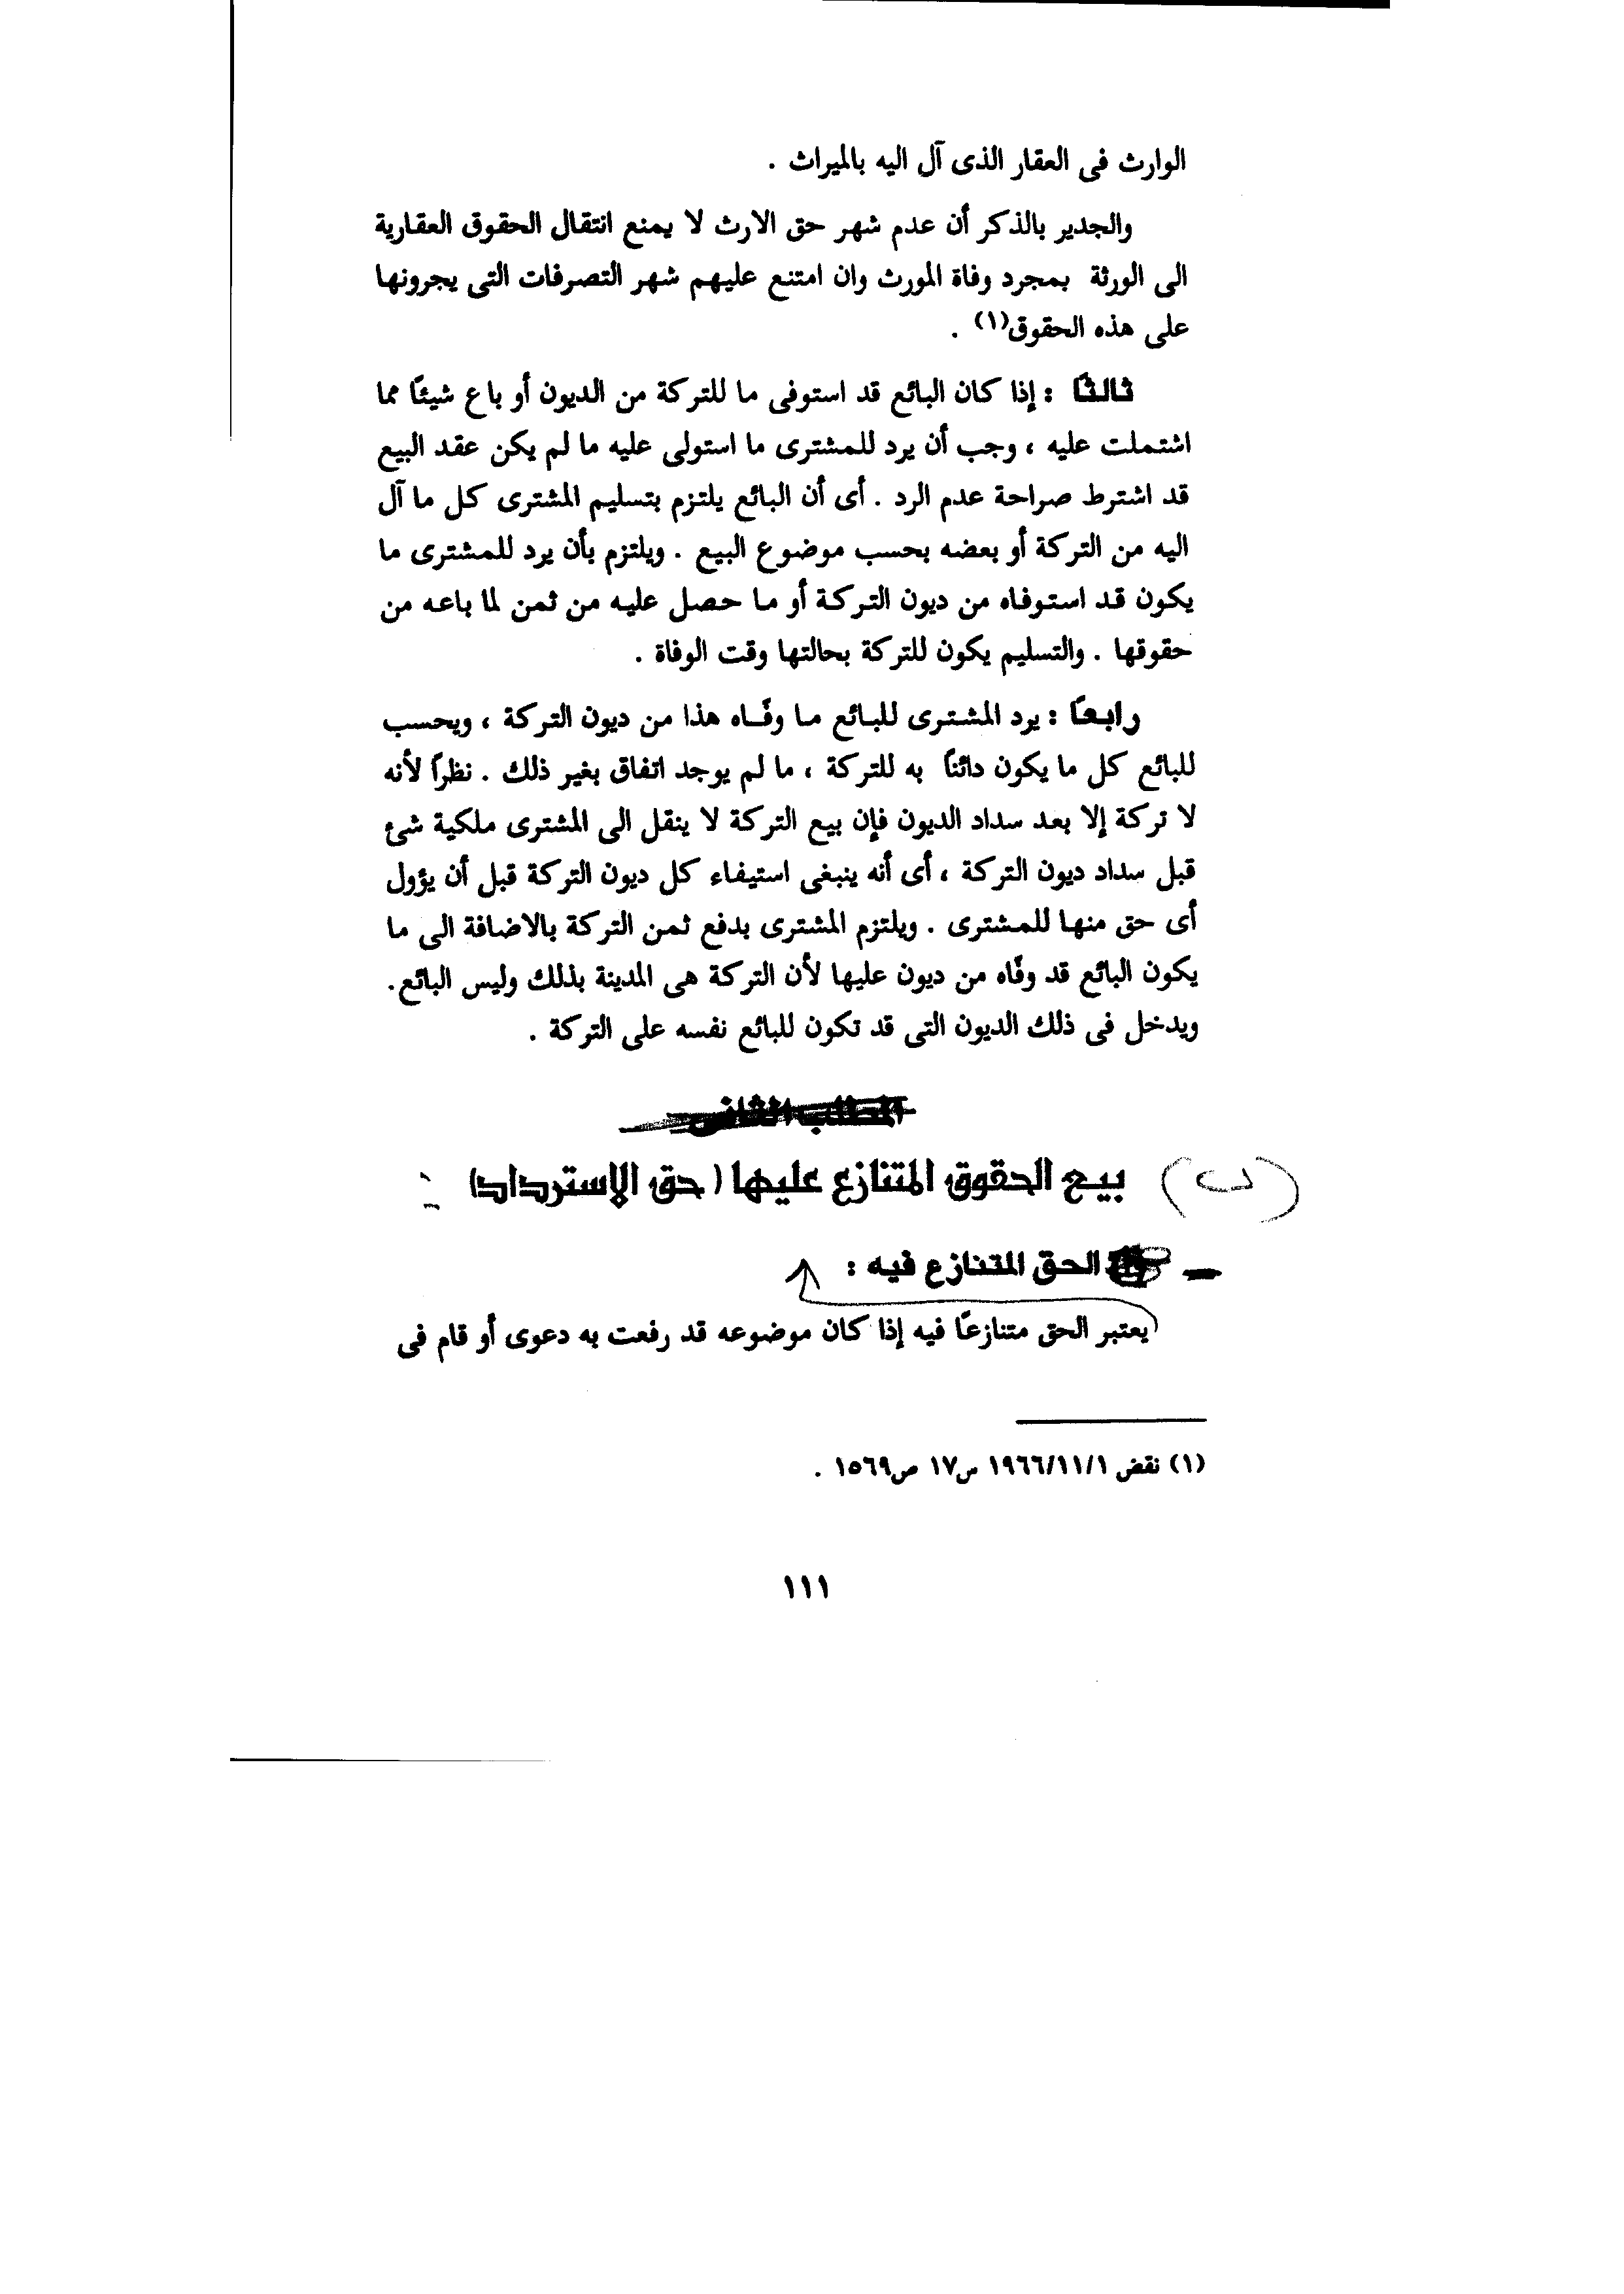 الوارث فى العقار الذى آل اليه بالميراث .
والجدير بالذكر أن عدم شهر حق الارث لا يمنع انتقال الحقوق العقارية
الى الورثة بمجرد وفاة المورث وان امتنع عليهم شهر التصرفات التى يجرونها
على هذه الحقوق(١) .
ثالثاً : إذا كان البائع قد استوفى ما للتركة من الديون أو باع شيئاً مما
اشتملت عليه ، وجب أن يرد للمشترى ما استولى عليه ما لم يكن عقد البيع
قد اشترط صراحة عدم الرد . أى أن البائع يلتزم بتسليم المشترى كل ما آل
اليه من التركة أو بعضه بحسب موضوع البيع . ويلتزم بأن يرد للمشترى ما
يكون قد استوفاه من ديون التركة أو ما حصل عليه من ثمن لما باعه من
حقوقها . والتسليم يكون للتركة بحالتها وقت الوفاة .
رابعاً : يرد المشترى للبائع ما وفَّاه هذا من ديون التركة ، ويحسب
للبائع كل ما يكون دائناً به للتركة ، ما لم يوجد اتفاق بغير ذلك . نظراً لأنه
لا تركة إلا بعد سداد الديون فإن بيع التركة لا ينقل الى المشترى ملكية شئ
قبل سداد ديون التركة ، أى أنه ينبغى استيفاء كل ديون التركة قبل أن يؤول
أى حق منها للمشترى . ويلتزم المشترى بدفع ثمن التركة بالاضافة الى ما
يكون البائع قد وفَّاه من ديون عليها لأن التركة هى المدينة بذلك وليس البائع.
ويدخل فى ذلك الديون التى قد تكون للبائع نفسه على التركة .
المطلب الثانى
(ب) بيع الحقوق المتنازع عليها (حق الإسترداد) :-
- الحق المتنازع فيه :
يعتبر الحق متنازعاً فيه إذا كان موضوعه قد رفعت به دعوى أو قام فى
(١) نقض ١٩٦٦/١١/١ س١٧ ص١٥٦٩ .
١١١